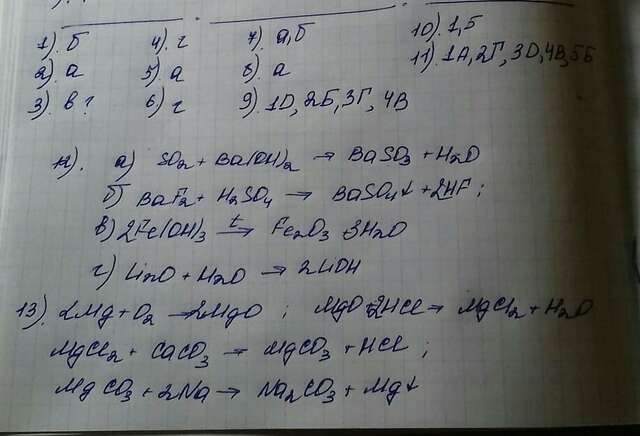 1). б 4). г 7). а,б 10). 1,Б
2). а 5). а 8). а 11). 1А,2Г,3D,4В,5Б
3). в? 6). г 9). 1D,2Б,3Г,4В
12). а) SO₂ + Ba(OH)₂ → BaSO₃ + H₂O
б) BaF₂ + H₂SO₄ → BaSO₄↓ + 2HF;
в) 2Fe(OH)₃ t→ Fe₂O₃ + 3H₂O
г) Li₂O + H₂O → 2LiOH
13). 2Mg + O₂ → 2MgO; MgO + 2HCl → MgCl₂ + H₂O
MgCl₂ + CaCO₃ → MgCO₃ + HCl;
MgCO₃ + 2Na → Na₂CO₃ + Mg↓